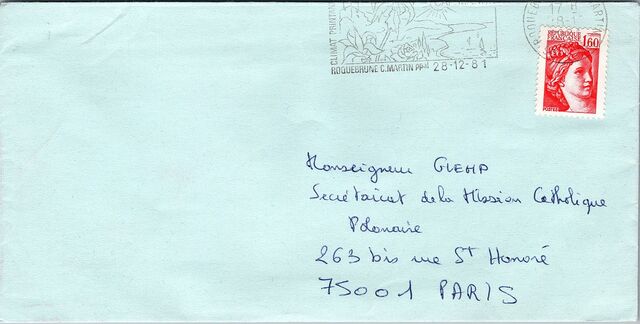 CLIMAT PRINTAN
ROQUEBRUNE C. MARTIN PPAL 28-12-81
17
ROQUEB MARTIN
RÉPUBLIQUE
FRANÇAISE
1,60
POSTES
Monseigneur GLEMP
Secrétariat de la Mission Catholique
Polonaise
263 bis rue St Honoré
75001 PARIS